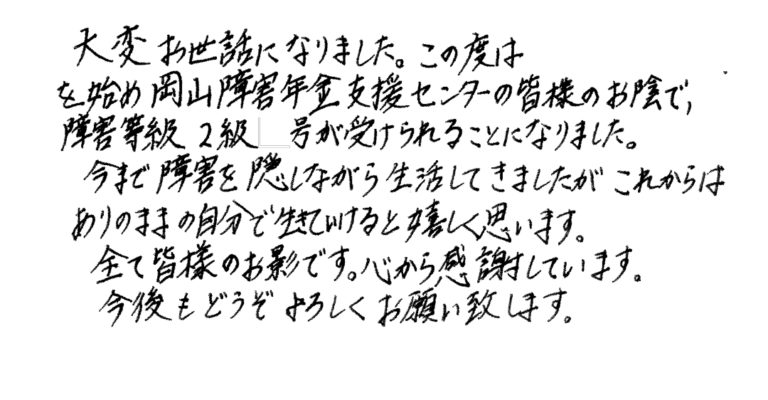 大変お世話になりました。この度は
を始め岡山障害年金支援センターの皆様のお陰で,
障害等級 2級 号が受けられることになりました。
今まで障害を隠しながら生活してきましたがこれからは
ありのままの自分で生きていけると嬉しく思います。
全て皆様のお影です。心から感謝しています。
今後もどうぞよろしくお願い致します。